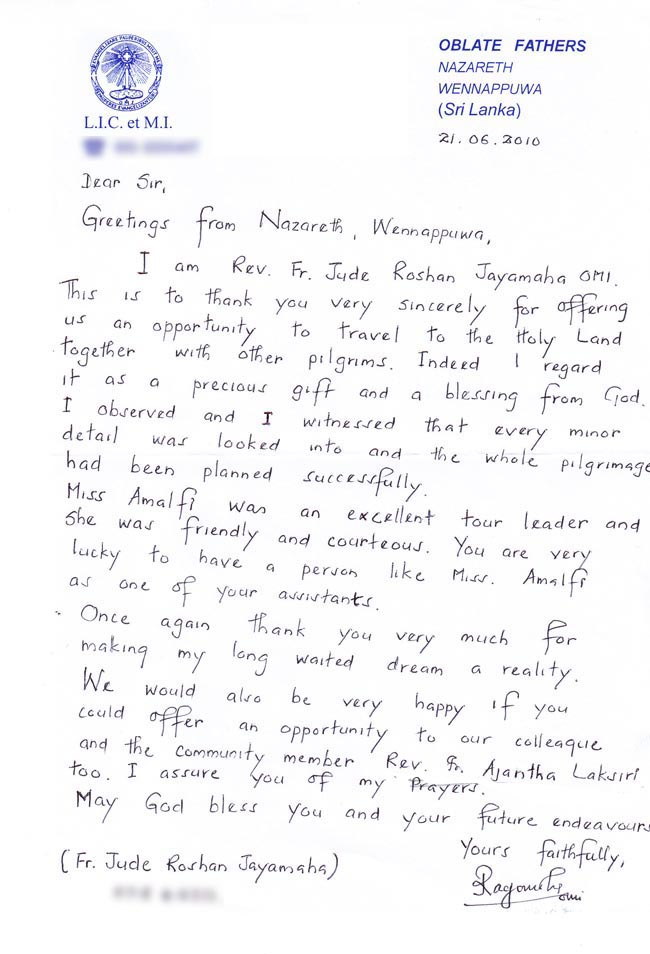 OBLATE FATHERS
NAZARETH
WENNAPPUWA
(Sri Lanka)
L.I.C. et M.I.
21.06.2010
Dear Sir,
Greetings from Nazareth, Wennappuwa,
I am Rev. Fr. Jude Roshan Jayamaha OMI.
This is to thank you very sincerely for offering
us an opportunity to travel to the Holy Land
together with other pilgrims. Indeed I regard
it as a precious gift and a blessing from God.
I observed and I witnessed that every minor
detail was looked into and the whole pilgrimage
had been planned successfully.
Miss Amalfi was an excellent tour leader and
she was friendly and courteous. You are very
lucky to have a person like Miss. Amalfi
as one of your assistants.
Once again thank you very much for
making my long waited dream a reality.
We would also be very happy if you
could offer an opportunity to our colleaque
and the community member Rev. Fr. Ajantha Laksiri
too. I assure you of my Prayers.
May God bless you and your future endeavours
Yours faithfully,
(Fr. Jude Roshan Jayamaha)
omi